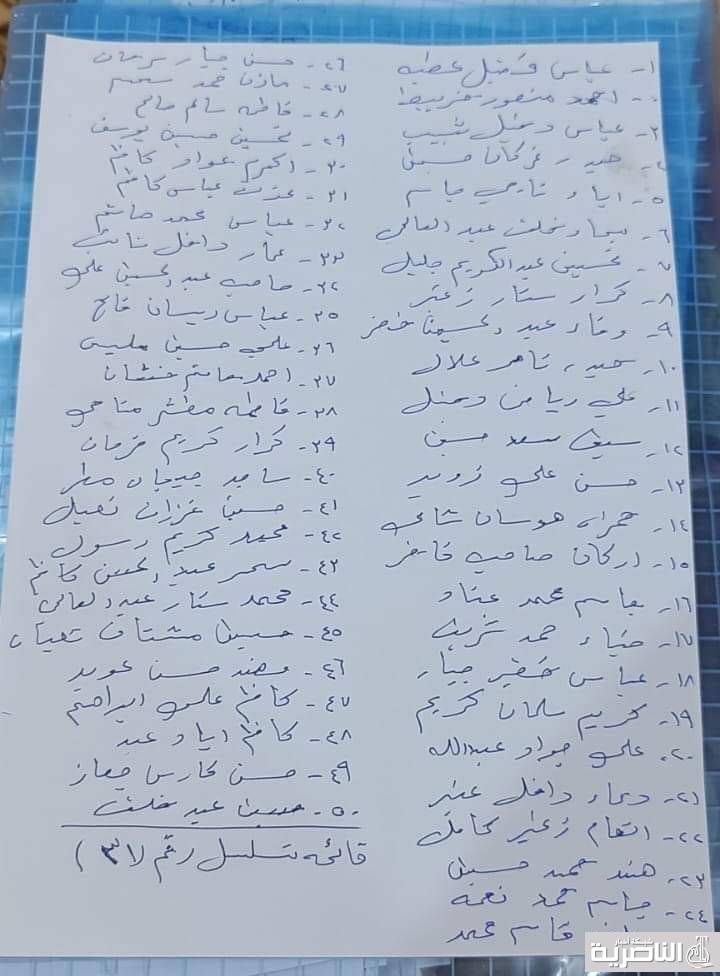 ١- عباس فضيل عطيه
٢- احمد منصور خريبط
٣- عباس دخيل شبيب
٤- حيدر غركان حسين
٥- اياد جاسم
٦- خلف عبد العالي
٧- تحسين عبد الكريم جليل
٨- كرار ستار زغير
٩- وفاء عبد الحسين خضر
١٠- حيدر ثامر علال
١١- علي رياض دخيل
١٢- سيف سعد حسين
١٣- حسن علي زويد
١٤- حمزه هوسان
١٥- اركان صاحب
١٦- جاسم محمد عناد
١٧- ضياء حمد شريف
١٨- عباس خضير جبار
١٩- كريم سلمان كريم
٢٠- علي جواد عبدالله
٢١- دعاء داخل
٢٢- انعام زغير كامل
٢٣- هند حميد حسين
٢٤- جاسم محمد نعمه
قاسم محمد
٢٦- حسن جبار
٢٧- مازن محمد
٢٨- فاطمه سالم
٢٩- تحسين حسين يوسف
٣٠- اكرم عواد كاظم
٣١- عباس كاظم
٣٢- عباس محمد هاشم
٣٣- عمار داخل
٣٤- صاحب عبد الحسين علي
٣٥- عباس ريسان فالح
٣٦- علي حسين
٣٧- احمد هاشم خشان
٣٨- فاطمه مطشر مناحي
٣٩- كرار كريم فرمان
٤٠- ساجد جيجان مطر
٤١- حسين غزران نعيل
٤٢- محمد كريم رسول
٤٣- سمير عبد الحسين كاظم
٤٤- محمد ستار عبد العالي
٤٥- حسين مشتاق
٤٦- مهند حسن عويد
٤٧- كاظم علي ابراهيم
٤٨- كاظم اياد عبد
٤٩- حسن
٥٠- حسين عبد خلف
قائمه تسلسل رقم (٣١)
شبكة اخبار
الناصرية